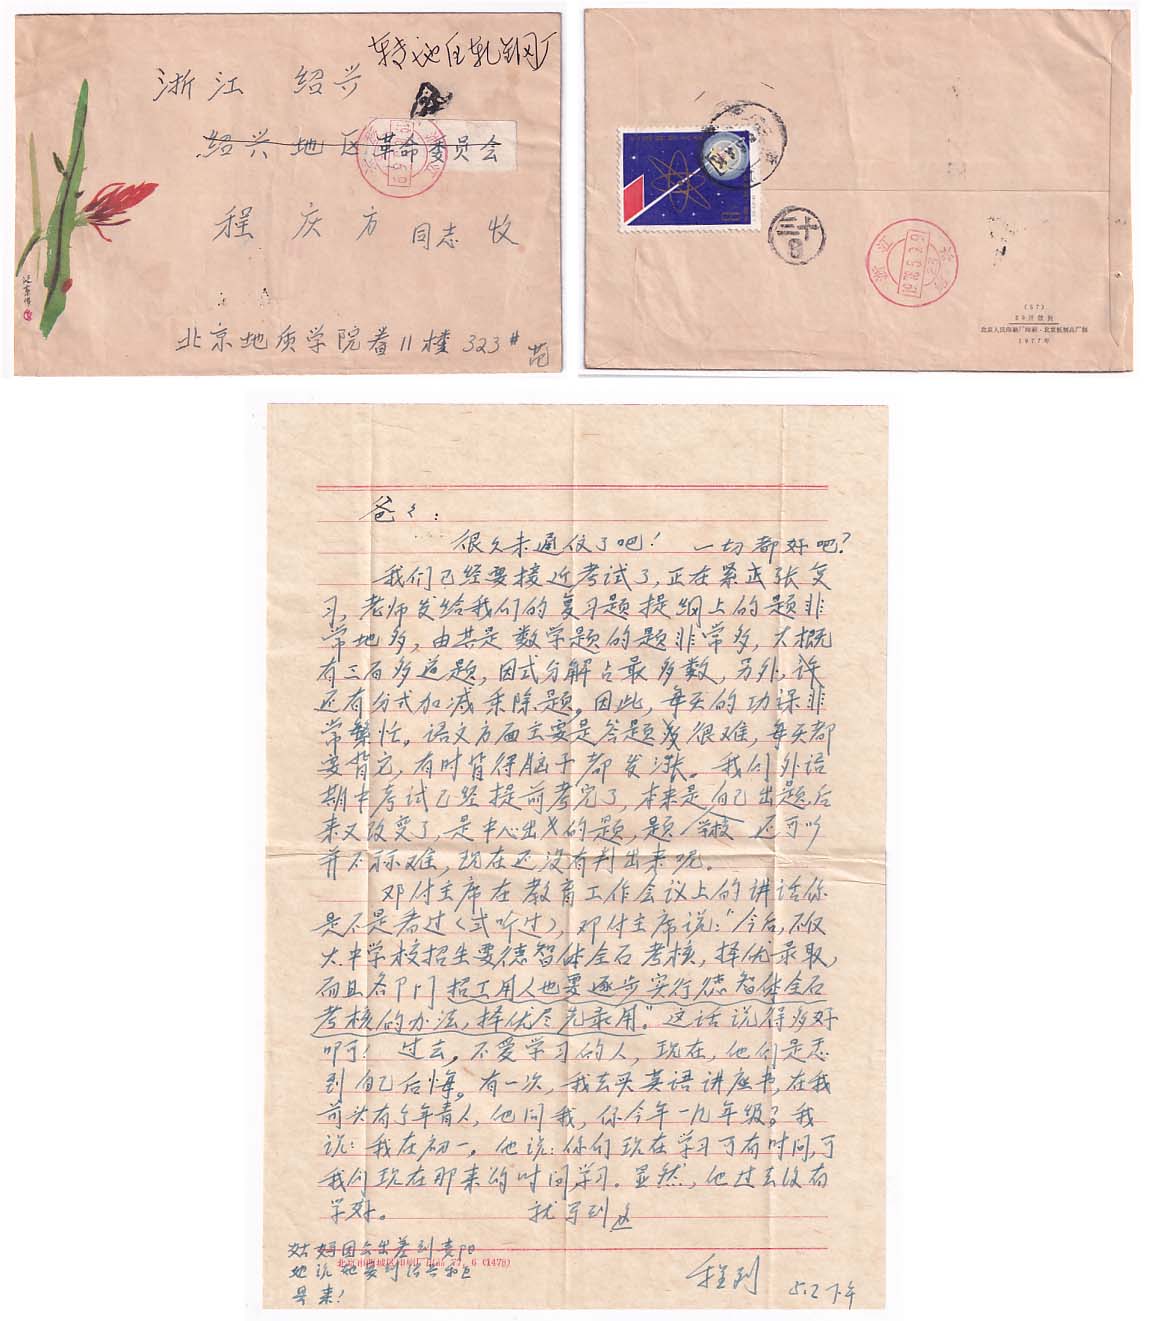 转地区轧钢厂
浙江 绍兴
绍兴地区革命委员会
程庆方同志收
北京地质学院 11楼 323#
三十
8
(57)
北京人民印刷厂印刷·北京纸制品厂制
1977年
爸々:
很久未通信了吧! 一切都好吧?
我们已经要接近考试了,正在紧张复
习,老师发给我们的复习题提纲上的题非
常地多,由其是数学题的题非常多,大概
有三百多道题,因式分解占最多数,另外,
还有分式加减乘除题。因此,每天的功课非
常繁忙。语文方面主要是答题很难,每天都
要背它,有时背得脑子都发涨。我们外语
期中考试已经提前考完了,本来是自己出题,后
来又改变了,是中心出的题,题学校还可以
并不称难,现在还没有判出来呢。
邓付主席在教育工作会议上的讲话你
是不是看过(或听过),邓付主席说:“今后,不仅
大中学校招生要德智体全面考核,择优录取,
而且各部门招工用人也要逐步实行德智体全面
考核的办法,择优尽先录用。”这话说得多好
啊! 过去,不爱学习的人,现在,他们是悉
到自己后悔。有一次,我去买英语讲座书,在我
前头有个年青人,他问我,你今年几年级?我
说:我在初一。他说:你们现在学习可有时间,可
我们现在那来的时间学习。显然,他过去没有
学好。 就写到这
姑妈因公出差到
她说她要到绍兴
来!
程到
5.2下午